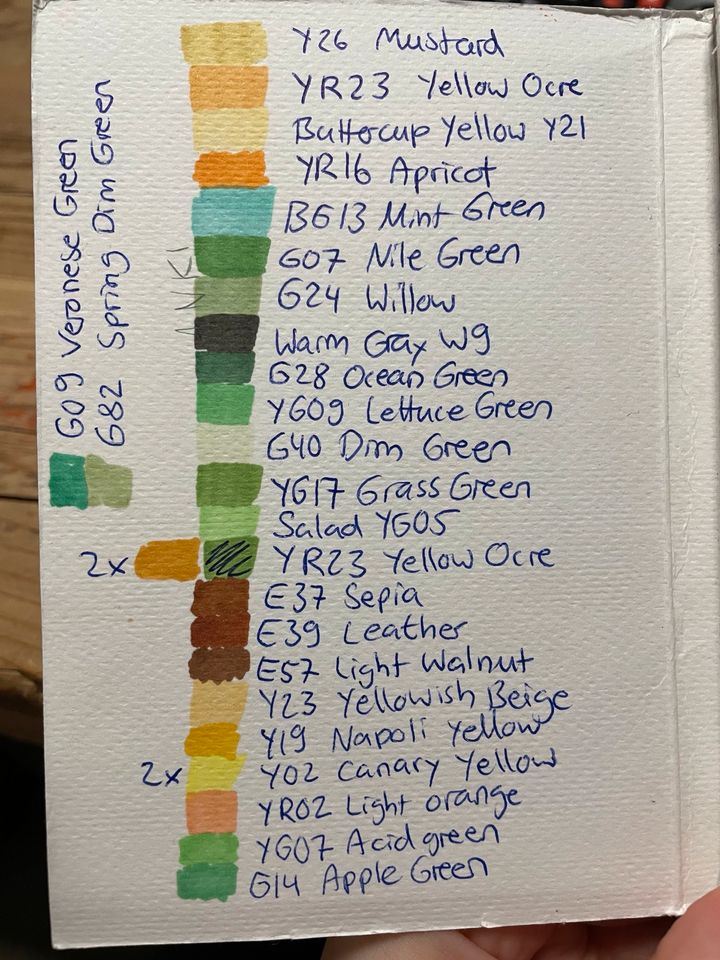 Y26 Mustard
YR23 Yellow Ocre
Buttercup Yellow Y21
YR16 Apricot
BG13 Mint Green
G07 Nile Green
G24 Willow
Warm Gray W9
G28 Ocean Green
YG09 Lettuce Green
G40 Dim Green
YG17 Grass Green
Salad YG05
2x YR23 Yellow Ocre
E37 Sepia
E39 Leather
E57 Light Walnut
Y23 Yellowish Beige
Y19 Napoli Yellow
2x Y02 Canary Yellow
YR02 Light orange
YG07 Acid green
G14 Apple Green
G09 Veronese Green
G82 Spring Dim Green